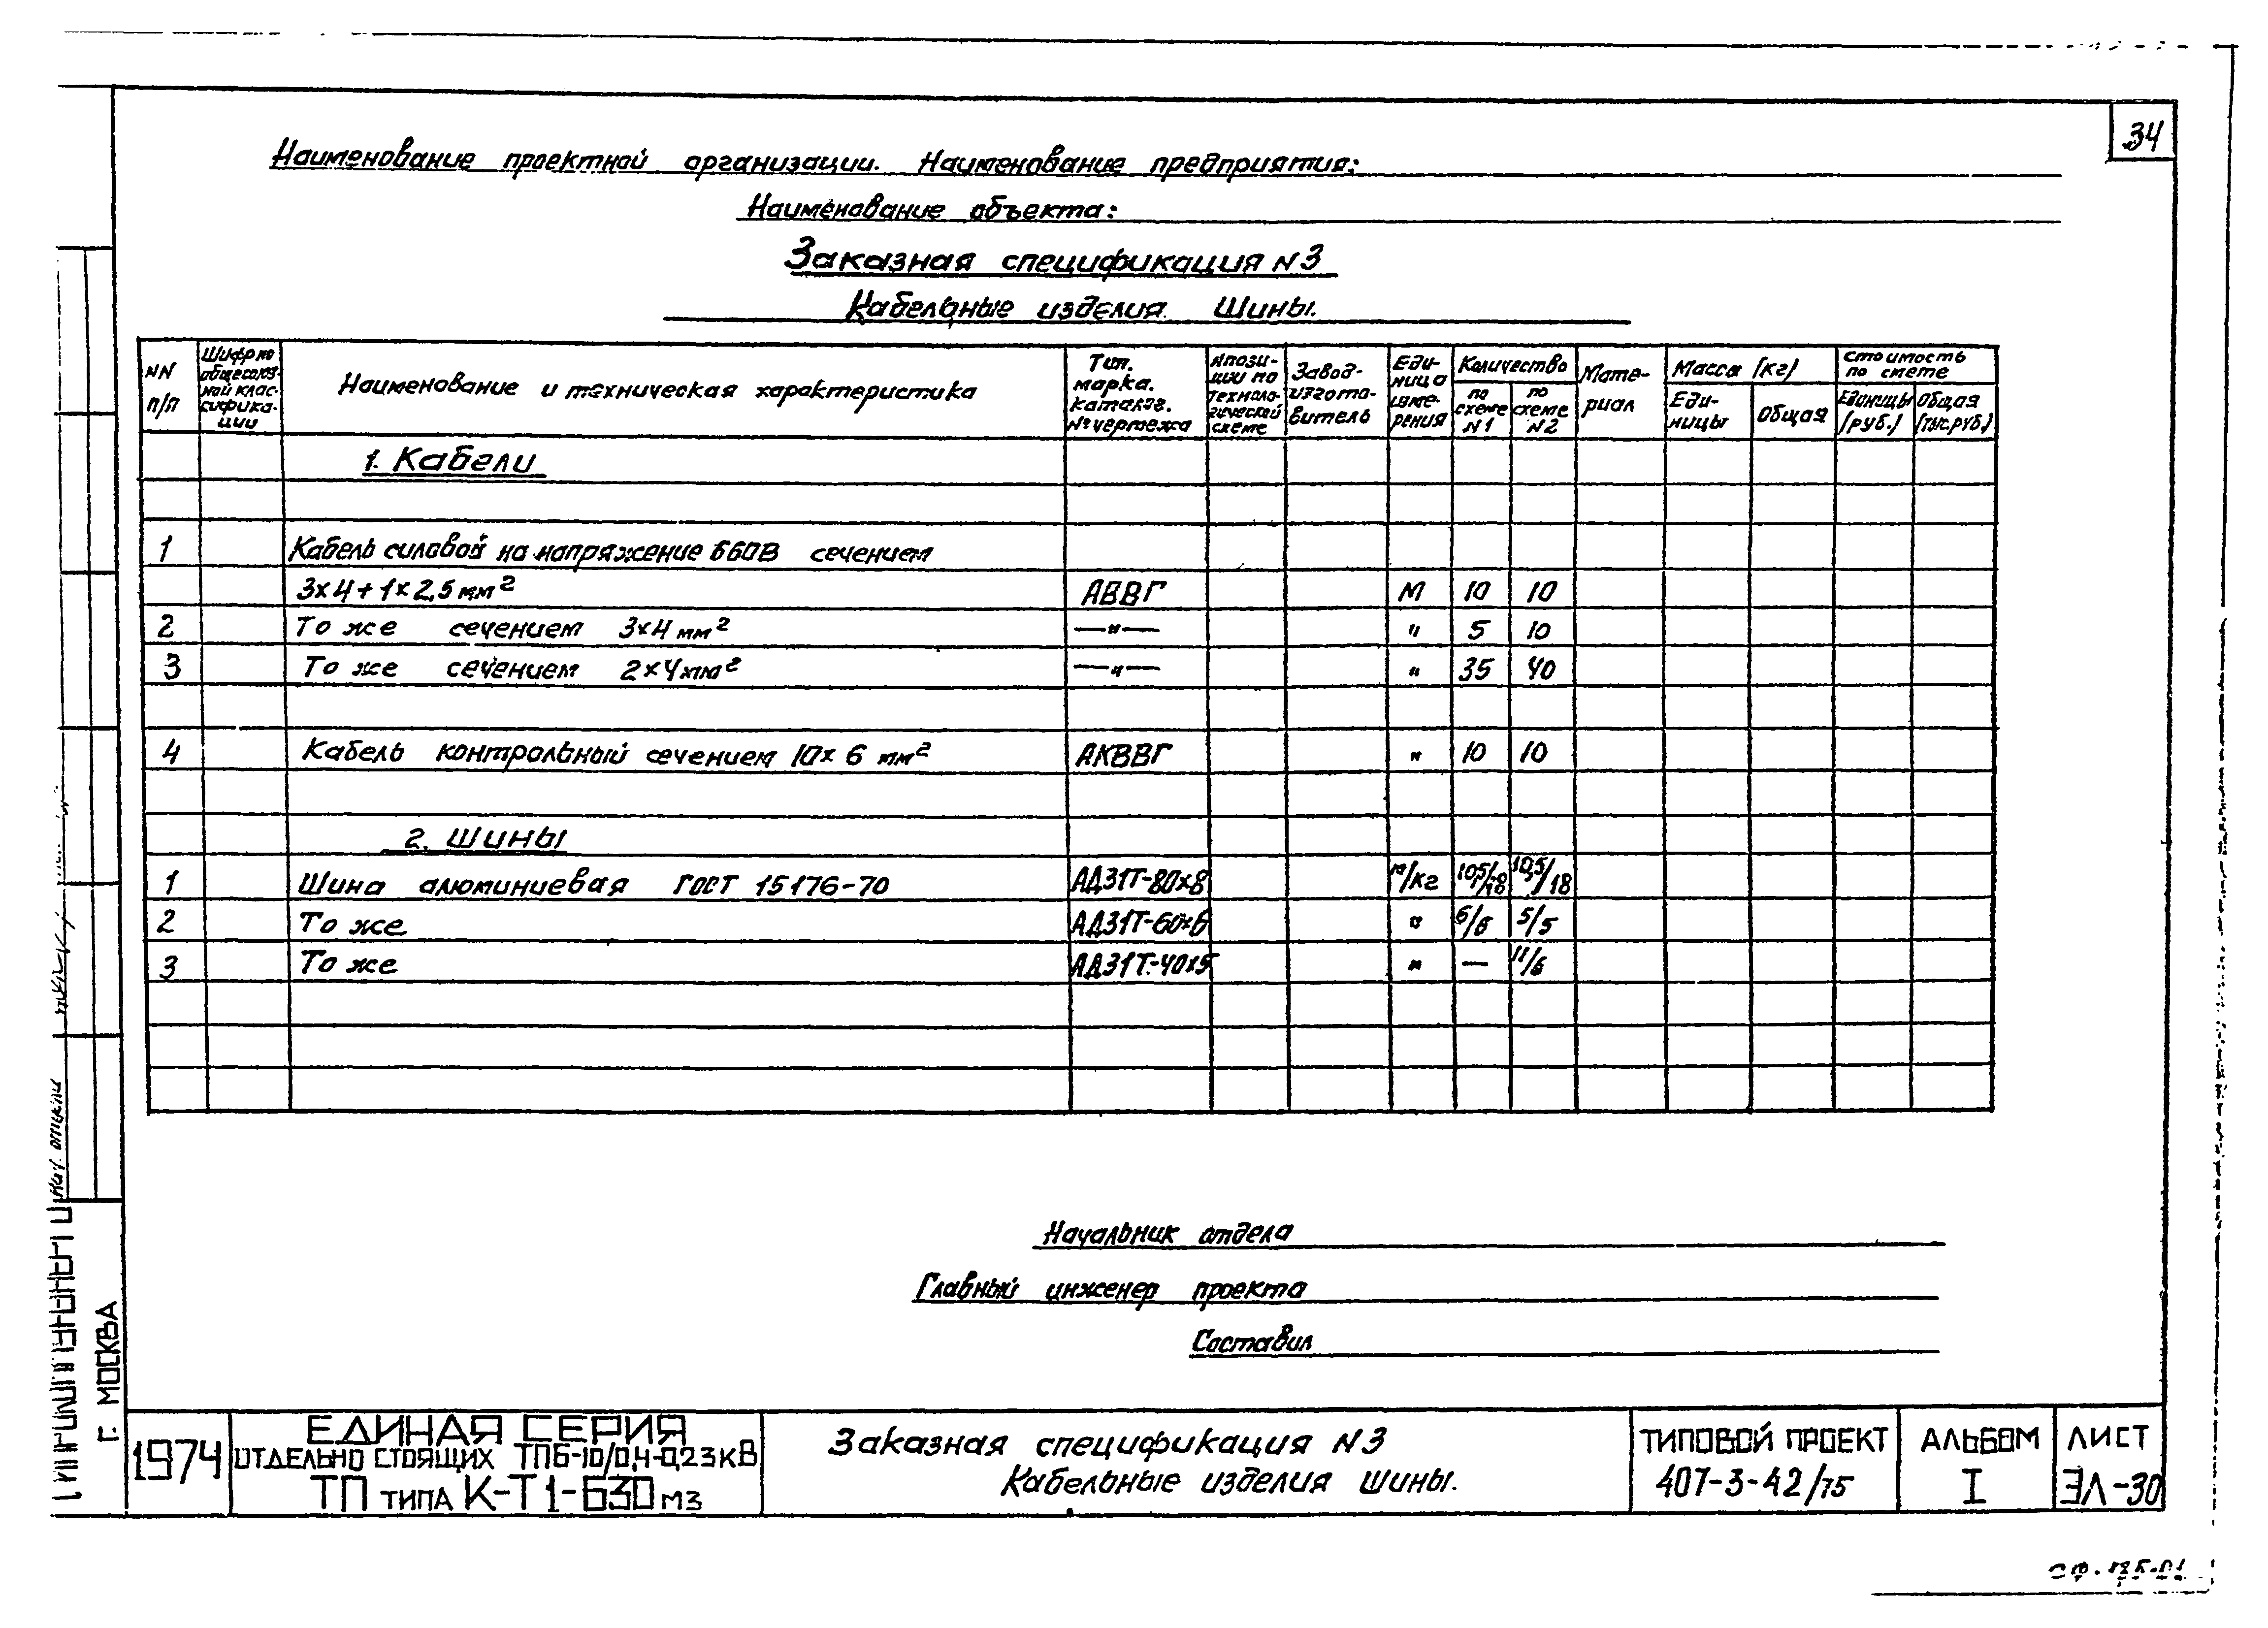 34
Наименование проектной организации. Наименование предприятия:
Наименование объекта:
Заказная спецификация N3
Кабельные изделия. Шины.
NN п/п
Шифр по общесоюзной классификации
Наименование и техническая характеристика
Тип. марка. каталог. № чертежа
№ позиции по технологической схеме
Завод-изготовитель
Единица измерения
Количество
по схеме N1
по схеме N2
Материал
Масса (кг)
Единицы
Общая
Стоимость по смете
Единицы (руб.)
Общая (тыс.руб.)
1. Кабели
1 Кабель силовой на напряжение 660В сечением
3х4+1х2,5 мм² АВВГ М 10 10
2 То же сечением 3х4 мм² —"— " 5 10
3 То же сечением 2х4 мм² —"— " 35 40
4 Кабель контрольный сечением 10х6 мм² АКВВГ " 10 10
2. Шины
1 Шина алюминиевая ГОСТ 15176-70 АД31Т-80х8 м/кг 10,5/18 10,5/18
2 То же АД31Т-60х6 " 6/6 5/5
3 То же АД31Т-40х5 " — 11/6
Начальник отдела
Главный инженер проекта
Составил
г. МОСКВА
1974
ЕДИНАЯ СЕРИЯ
ОТДЕЛЬНО СТОЯЩИХ ТП 6-10/0,4-0,23кВ
ТП ТИПА К-Т1-630 МЗ
Заказная спецификация N3
Кабельные изделия шины.
ТИПОВОЙ ПРОЕКТ
407-3-42/75
АЛЬБОМ
I
ЛИСТ
ЭЛ-30